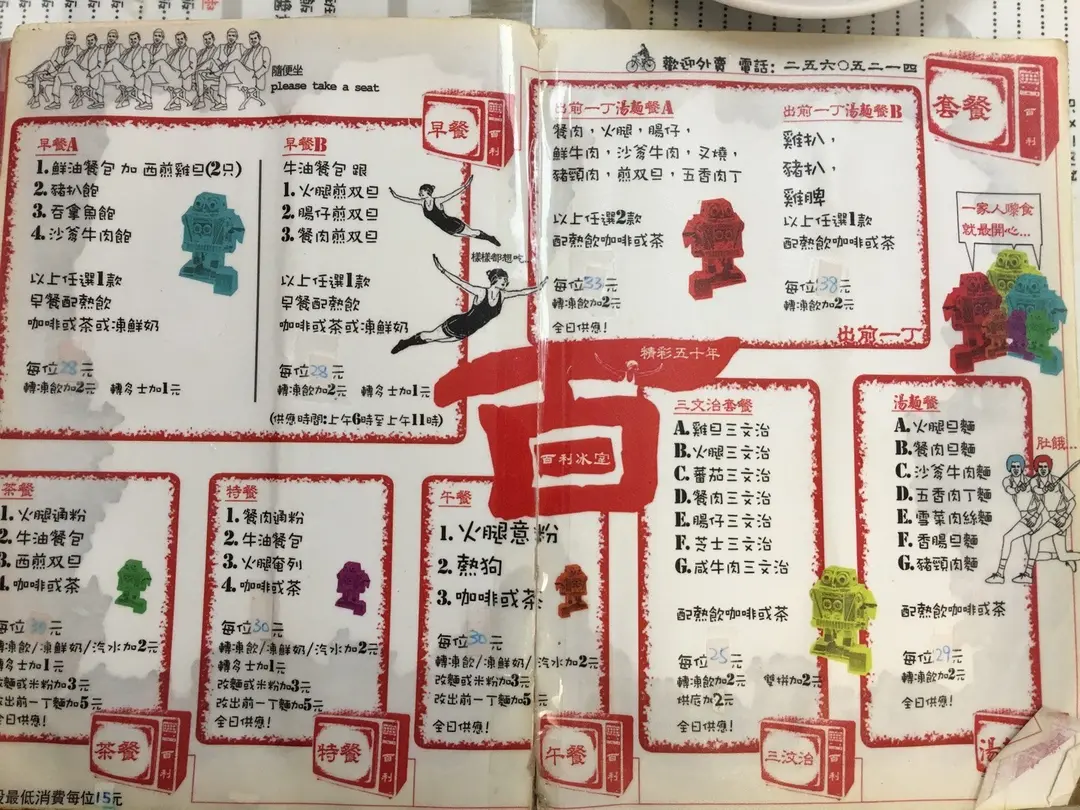 隨便坐
please take a seat
歡迎外賣 電話: 二五六〇五二一四
早餐
百利
早餐A
1.鮮油餐包 加 西煎雞旦(2只)
2.豬扒飽
3.吞拿魚飽
4.沙爹牛肉飽
以上任選1款
早餐配熱飲
咖啡或茶或凍鮮奶
每位28元
轉凍飲加2元 轉多士加1元
早餐B
牛油餐包 跟
1.火腿煎双旦
2.腸仔煎双旦
3.餐肉煎双旦
以上任選1款
早餐配熱飲
咖啡或茶或凍鮮奶
每位28元
轉凍飲加2元 轉多士加1元
(供應時間:上午6時至上午11時)
樣樣都想吃...
套餐
百利
出前一丁湯麵餐A
餐肉，火腿，腸仔，
鮮牛肉，沙爹牛肉，叉燒，
豬頸肉，煎双旦，五香肉丁
以上任選2款
配熱飲咖啡或茶
每位33元
轉凍飲加2元
全日供應!
出前一丁湯麵餐B
雞扒，
豬扒，
雞脾
以上任選1款
配熱飲咖啡或茶
每位38元
轉凍飲加2元
出前一丁
一家人嚟食
就最開心...
精彩五十年
百利冰室
茶餐
1.火腿通粉
2.牛油餐包
3.西煎双旦
4.咖啡或茶
每位30元
轉凍飲/凍鮮奶/汽水加2元
轉多士加1元
改麵或米粉加3元
改出前一丁麵加5元
全日供應!
茶餐
百利
特餐
1.餐肉通粉
2.牛油餐包
3.火腿奄列
4.咖啡或茶
每位30元
轉凍飲/凍鮮奶/汽水加2元
轉多士加1元
改麵或米粉加3元
改出前一丁麵加5元
全日供應!
特餐
百利
午餐
1.火腿意粉
2.熱狗
3.咖啡或茶
每位30元
轉凍飲/凍鮮奶/汽水加2元
改麵或米粉加3元
改出前一丁麵加5元
全日供應!
午餐
百利
三文治套餐
A.雞旦三文治
B.火腿三文治
C.蕃茄三文治
D.餐肉三文治
E.腸仔三文治
F.芝士三文治
G.咸牛肉三文治
配熱飲咖啡或茶
每位25元
轉凍飲加2元 雙拼加2元
烘底加2元
全日供應!
三文治
百利
湯麵餐
A.火腿旦麵
B.餐肉旦麵
C.沙爹牛肉麵
D.五香肉丁麵
E.雪菜肉絲麵
F.香腸旦麵
G.豬頸肉麵
配熱飲咖啡或茶
每位29元
轉凍飲加2元
全日供應!
肚餓...
湯
最低消費每位15元